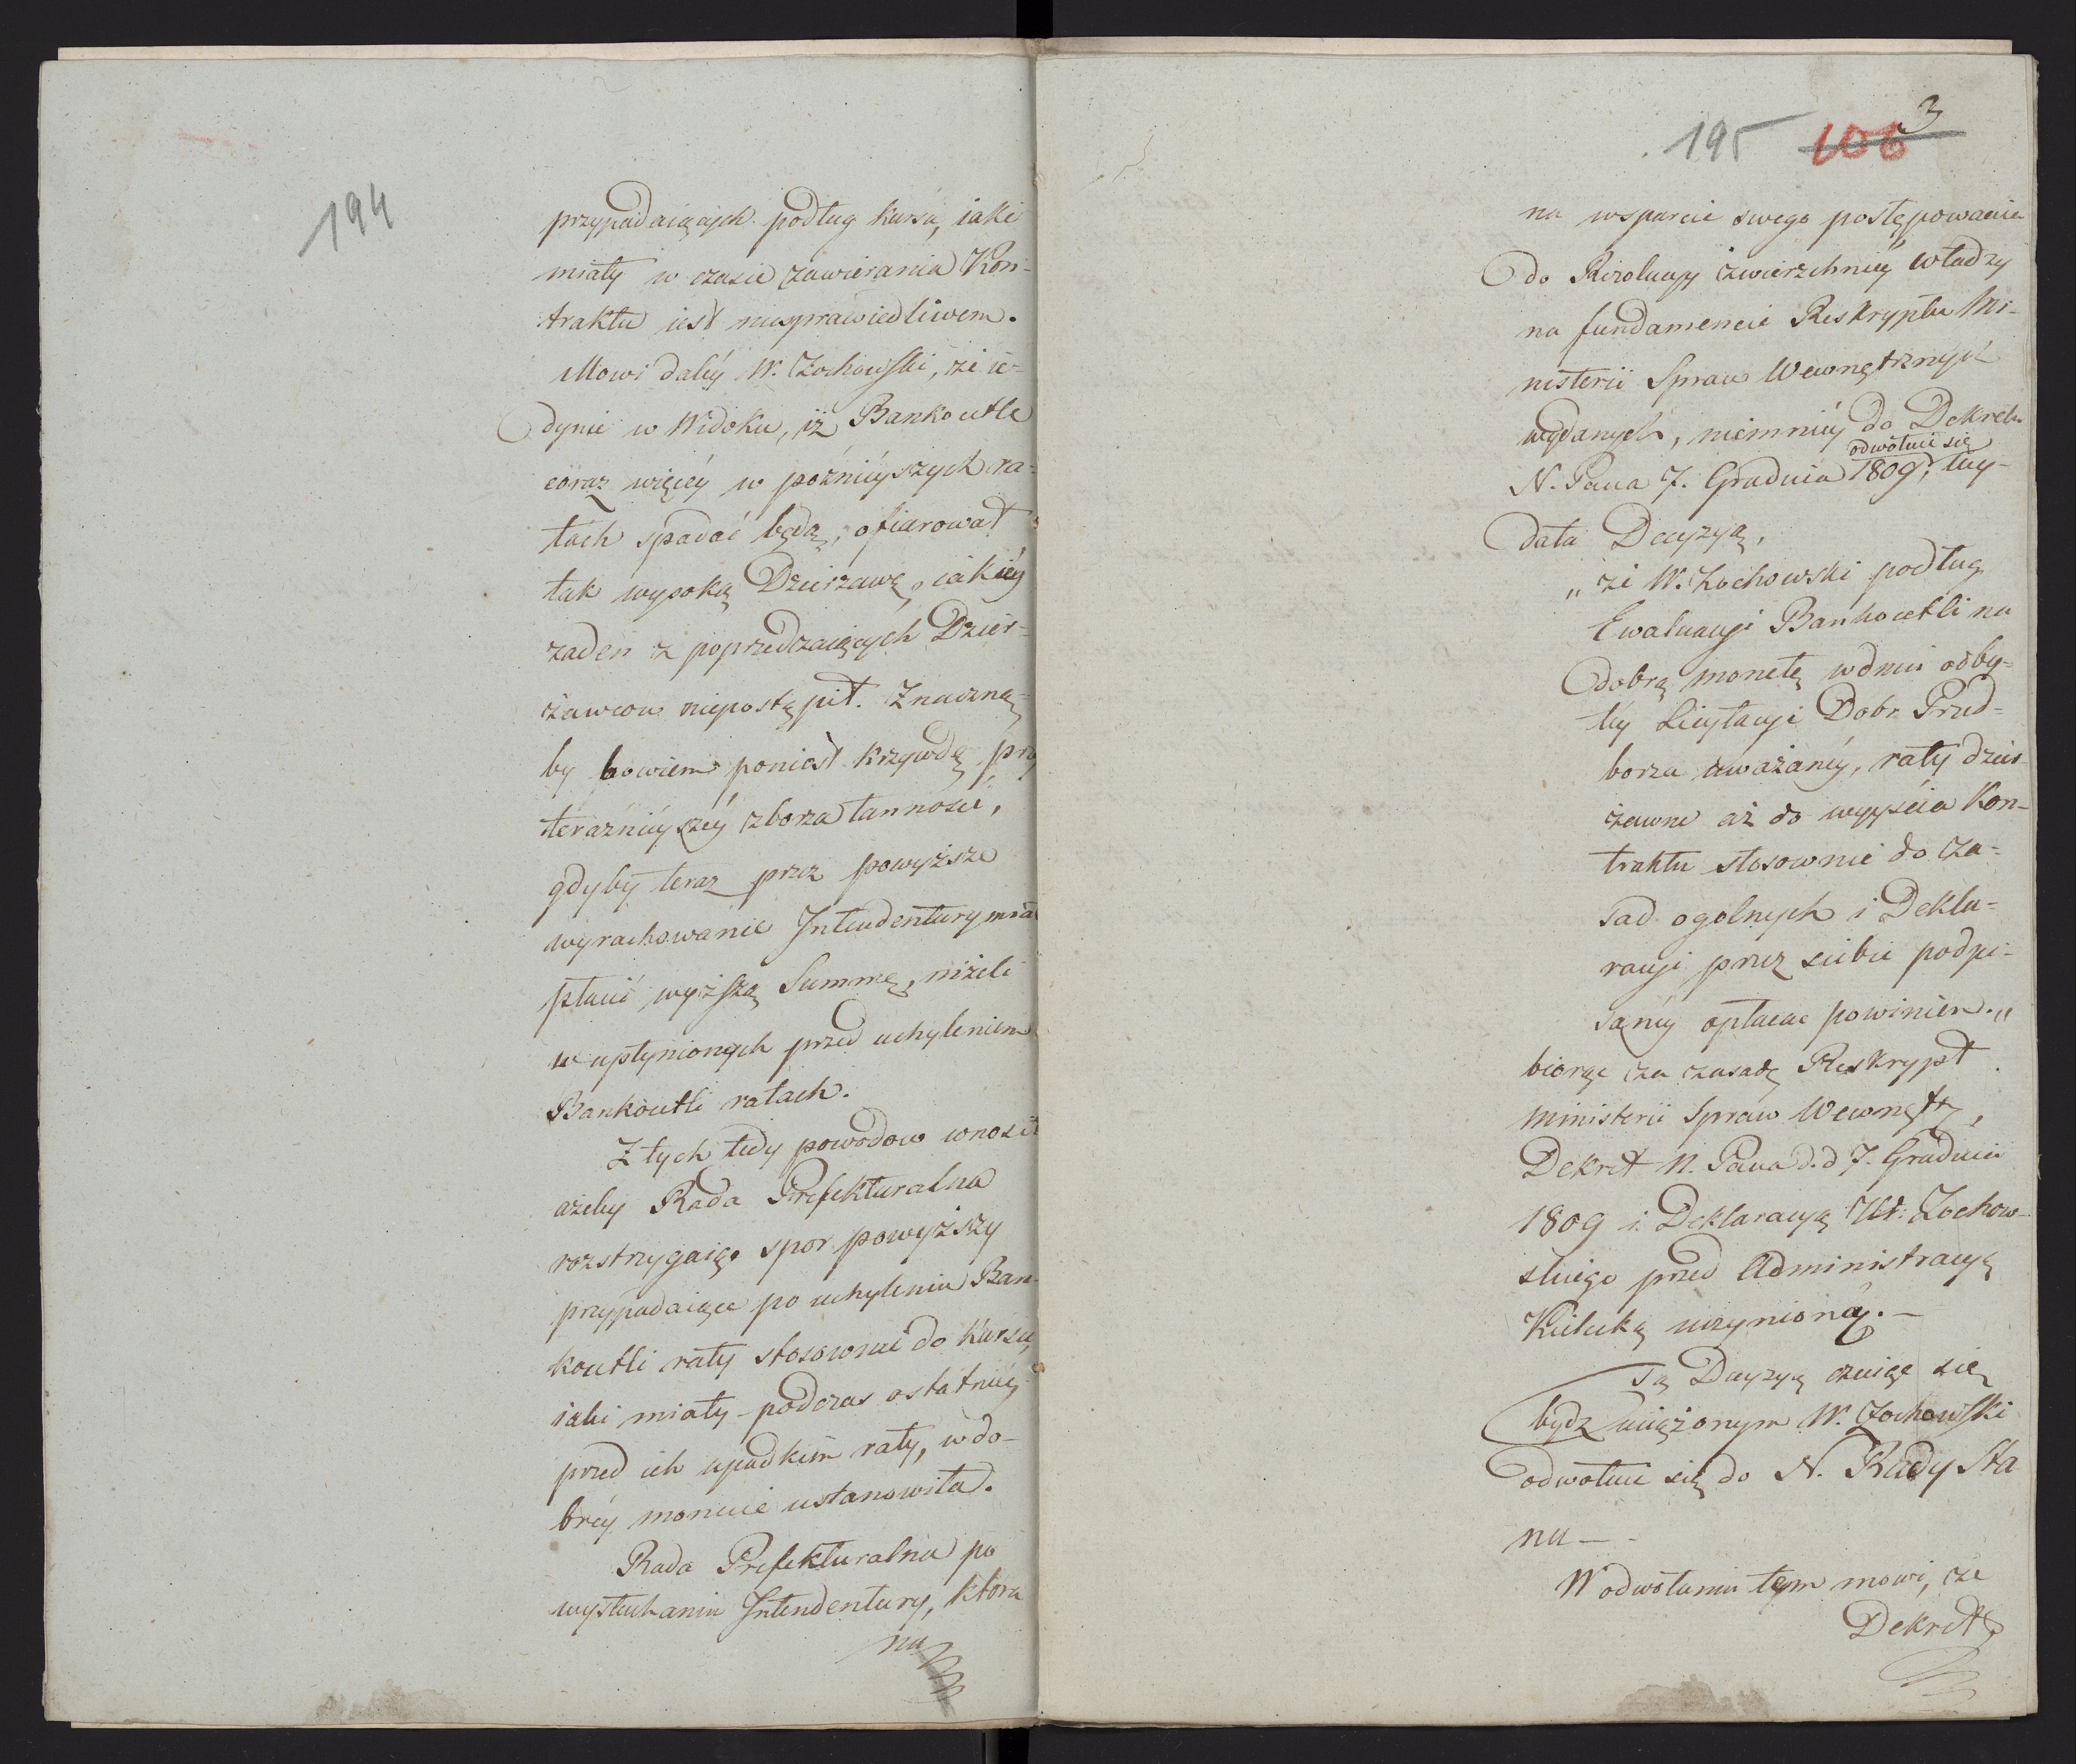 194
przypadaiących podług kursu, iaki
miały w czasie zawierania Kon-
traktu iest niesprawiedliwem.
Mowi daléy W. Zochowski, że ie-
dynie w Widoku, iż Bankocetle
coraz więcéy w poźnieyszych ra-
tach spadać będą, ofiarował
tak wysoką Dzierzawę, iakiéy
żaden z poprzedzaiących Dzier-
żawcow niepostąpił. Znaczną-
by bowiem poniosł krzywdę przy
teraznieyszéy zboża tanności,
gdyby teraz przez powyższe
wyrachowanie Intendentury miał
płacić wyższą Summę, niżeli
w upłynionych przed uchyleniem
Bankocetli ratach.
Z tych tedy powodow wnosił
ażeby Rada Prefekturalna
rozstrzygaiąc spor powyższy
przypadaiące po uchyleniu Ban-
kocetli raty stosownie do kursu,
iaki miały podczas ostatniéy
przed ich upadkiem raty, w do-
bréy monecie ustanowiła.
Rada Prefekturalna po
wysłuchaniu Intendentury, która
na
3
195 106
na wsparcie swego postępowania
do Rezolucyy zwierzchniéy władzy
na fundamencie Reskryptu Mi-
nisterii Spraw Wewnętrznych
wydanych, niemniéy do Dekretu
odwołuie się
N. Pana 7. Grudnia 1809, wy-
dała Decyzyą,
„że W. Zochowski podług
Ewaluacyi Bankocetli na
dobrą monetę w dniu odby-
téy Licytacyi Dobr Przed-
borza uważanéy, raty dzier-
żawne aż do wyyścia Kon-
traktu stosownie do za-
sad ogolnych i Dekla-
racyi przez siebie podpi-
sanéy opłacac powinien.„
biorąc za zasadę Reskrypt
Ministerii Spraw Wewnętrz,
Dekret N. Pana d.d 7. Grudnia
1809 i Deklaracyą W. Zochow-
skiego przed Administracyą
Kielcką uczynioną.—
Tą Decyzyą czuiąc się
bydz uciążonym W. Zochowski
odwołuie się do N. Rady Sta
nu—
W odwołaniu tym mowi, że
Dekret